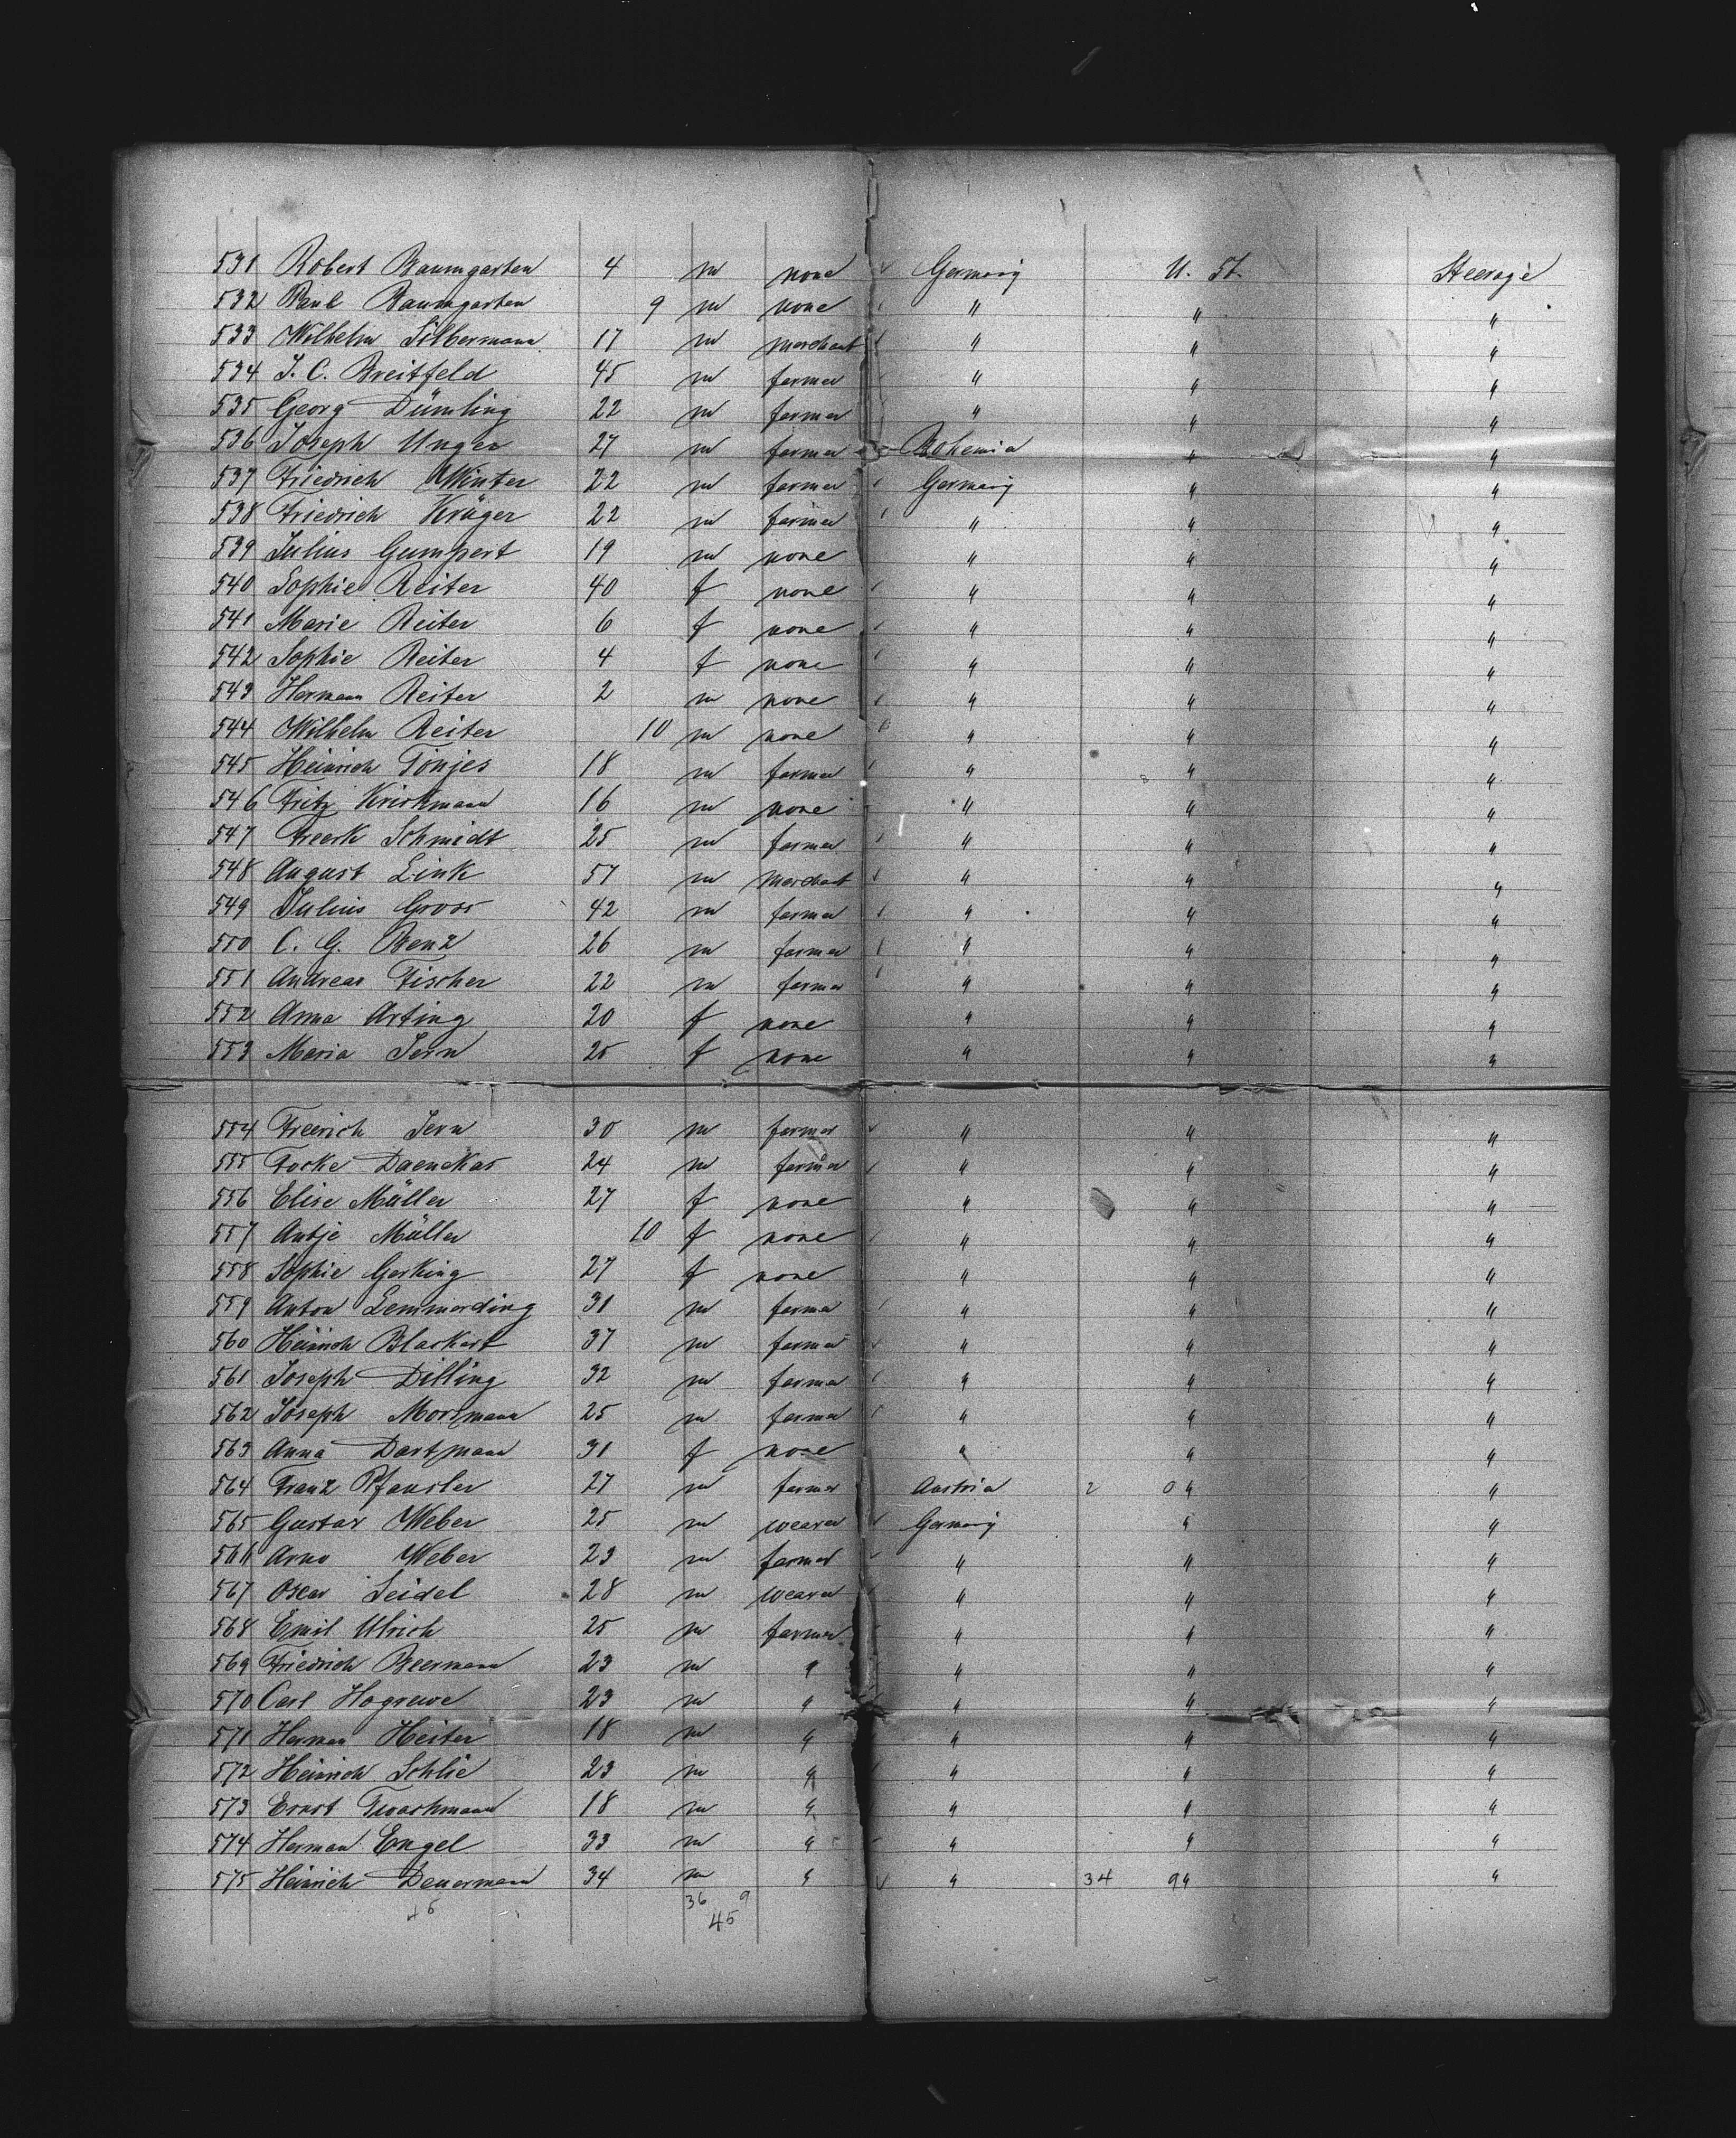 531 Robert Baumgarten 4 m none Germany U. St. Steerage
532 Paul Baumgarten 9 m none " " "
533 Wilhelm Silbermann 17 m merchant " " "
534 J. C. Breitfeld 45 m farmer " " "
535 Georg Dümling 22 m farmer " " "
536 Joseph Unger 27 m farmer Bohemia " "
537 Friedrich Winter 22 m farmer Germany " "
538 Friedrich Krüger 22 m farmer " " "
539 Julius Gumpert 19 m none " " "
540 Sophie Reiter 40 f none " " "
541 Marie Reiter 6 f none " " "
542 Sophie Reiter 4 f none " " "
543 Herman Reiter 2 m none " " "
544 Wilhelm Reiter 10 m none " " "
545 Heinrich Tönjes 18 m farmer " " "
546 Fritz Krickmann 16 m none " " "
547 Freerk Schmidt 25 m farmer " " "
548 August Link 57 m merchant " " "
549 Julius Gross 42 m farmer " " "
550 C. G. Benz 26 m farmer " " "
551 Andreas Fischer 22 m farmer " " "
552 Anna Arting 20 f none " " "
553 Maria Jern 25 f none " " "
554 Freerich Jern 30 m farmer " " "
555 Focke Daenekas 24 m farmer " " "
556 Elise Müller 27 f none " " "
557 Antje Müller 10 f none " " "
558 Sophie Gerking 27 f none " " "
559 Anton Lemmerding 31 m farmer " " "
560 Heinrich Blackert 37 m farmer " " "
561 Joseph Dilling 32 m farmer " " "
562 Joseph Morsmann 25 m farmer " " "
563 Anna Dartmann 31 f none " " "
564 Franz Pfansler 27 m farmer Austria 2 0 " "
565 Gustav Weber 25 m weaver Germany " "
566 Arno Weber 23 m farmer " " "
567 Oscar Seidel 28 m weaver " " "
568 Emil Ulrich 25 m farmer " " "
569 Friedrich Beermann 23 m " " " "
570 Carl Hogrewe 23 m " " " "
571 Herman Heiter 18 m " " " "
572 Heinrich Schlie 23 m " " " "
573 Ernst Twachmann 18 m " " " "
574 Herman Engel 33 m " " " "
575 Heinrich Deuermann 34 m " " 34 9 " "
45 36 9
45